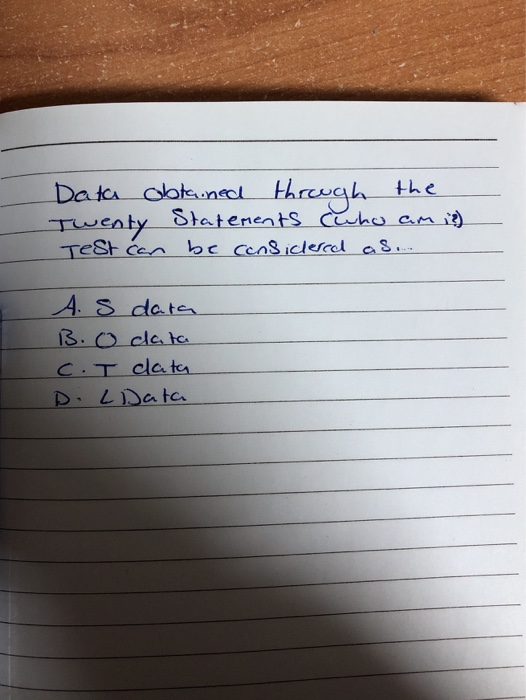 Data obtained through the
Twenty Statements (who am i?)
Test can be considered as...
A. S data
B. O data
C. T data
D. L Data